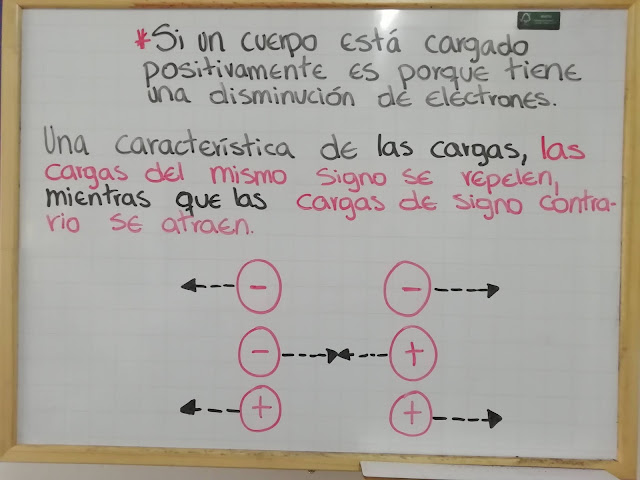 *Si un cuerpo está cargado
positivamente es porque tiene
una disminución de electrones.
Una característica de las cargas, las
cargas del mismo signo se repelen,
mientras que las cargas de signo contra-
rio se atraen.
- -
- +
+ +